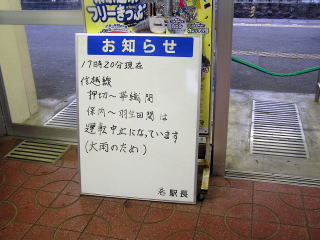 フリーきっぷ
お知らせ
17時20分現在
信越線
押切〜茨曽根間
保内〜羽生田間は
運転中止になっています
(大雨のため)
駅長